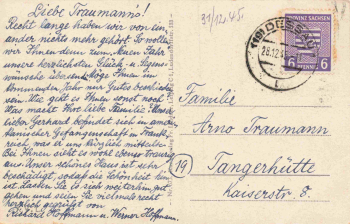 Liebe Traumann's!
Recht lange haben wir von ein-
ander nichts mehr gehört. So wollen
wir Ihnen denn zum Neuen Jahr
unsere herzlichsten Glück- u. Segens-
wünsche übersenden. Möge Ihnen im
kommenden Jahr nur Gutes beschieden
sein. Wie geht es Ihnen sonst noch?
Was macht Ihre liebe Familie? Unser
lieber Gerhard befindet sich in ameri-
kanischer Gefangenschaft in Frank-
reich, was er uns kürzlich mitteilte.
Bei Ihnen sieht es wohl ebenso traurig
aus. Unser schönes Haus ist sehr
beschädigt, sodaß die Schönheit hin
ist. Lassen Sie es sich weiterhin gut
gehen und seien Sie vielmals recht
herzlich gegrüßt von
Richard Hoffmann u. Werner Hoffmann.
31/12.45.
PROVINZ SACHSEN
6 PFENNIG 6
28.12.
Familie
Arno Traumann
(19) Tangerhütte
Kaiserstr. 8.